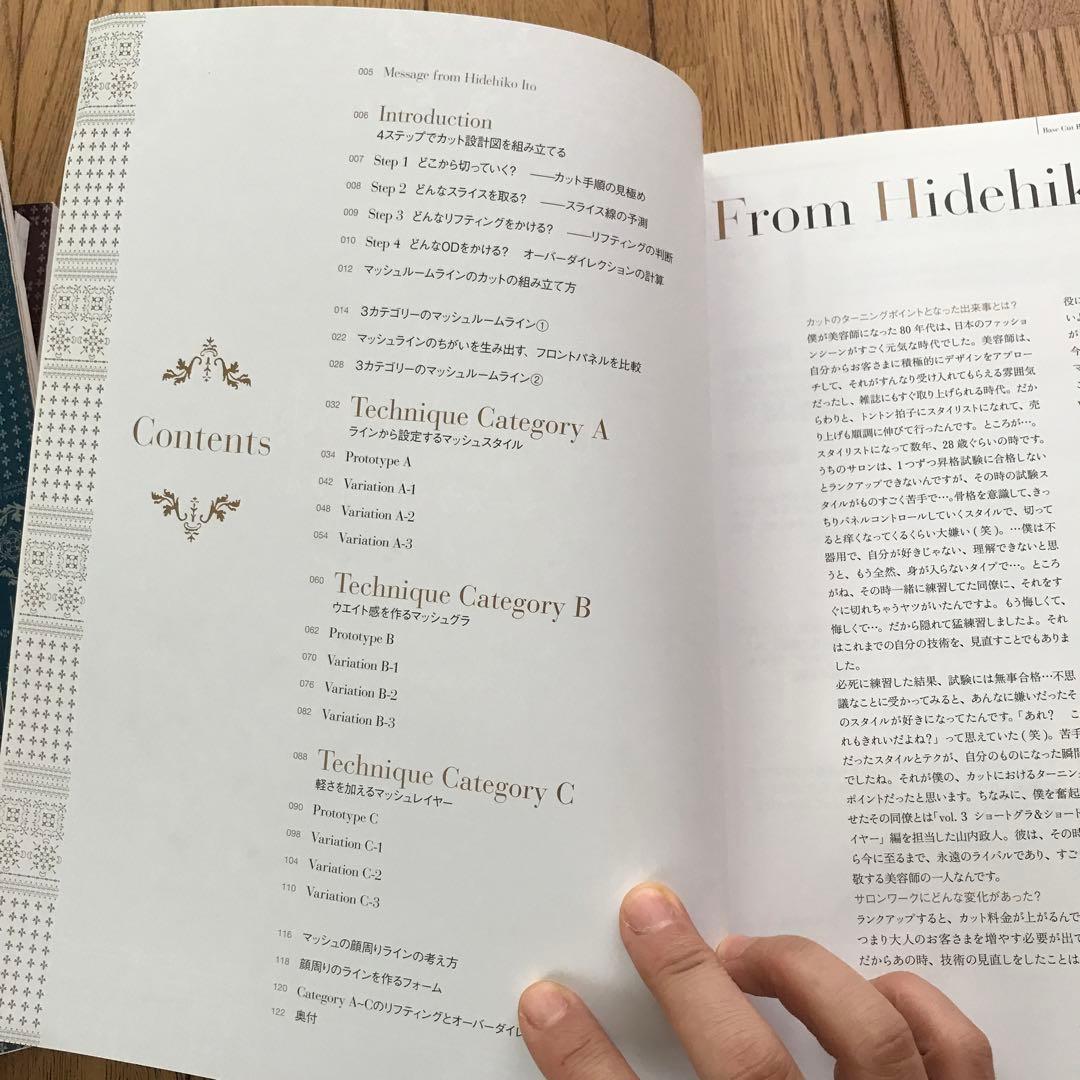 Contents
005 Message from Hidehiko Ito
006 Introduction
4ステップでカット設計図を組み立てる
007 Step 1 どこから切っていく? ——カット手順の見極め
008 Step 2 どんなスライスを取る? ——スライス線の予測
009 Step 3 どんなリフティングをかける? ——リフティングの判断
010 Step 4 どんなODをかける? オーバーダイレクションの計算
012 マッシュルームラインのカットの組み立て方
014 3カテゴリーのマッシュルームライン①
022 マッシュラインのちがいを生み出す、フロントパネルを比較
028 3カテゴリーのマッシュルームライン②
032 Technique Category A
ラインから設定するマッシュスタイル
034 Prototype A
042 Variation A-1
048 Variation A-2
054 Variation A-3
060 Technique Category B
ウエイト感を作るマッシュグラ
062 Prototype B
070 Variation B-1
076 Variation B-2
082 Variation B-3
088 Technique Category C
軽さを加えるマッシュレイヤー
090 Prototype C
098 Variation C-1
104 Variation C-2
110 Variation C-3
116 マッシュの顔周りラインの考え方
118 顔周りのラインを作るフォーム
120 Category A~Cのリフティングとオーバーダイレ
122 奥付
Base Cut B
From Hidehik
カットのターニングポイントとなった出来事とは?
僕が美容師になった80年代は、日本のファッショ
ンシーンがすごく元気な時代でした。美容師は、
自分からお客さまに積極的にデザインをアプロー
チして、それがすんなり受け入れてもらえる雰囲気
だったし、雑誌にもすぐ取り上げられる時代。だか
らわりと、トントン拍子にスタイリストになれて、売
り上げも順調に伸びて行ったんです。ところが…。
スタイリストになって数年、28歳ぐらいの時です。
うちのサロンは、1つずつ昇格試験に合格しない
とランクアップできないんですが、その時の試験ス
タイルがものすごく苦手で…。骨格を意識して、きっ
ちりパネルコントロールしていくスタイルで、切って
ると痒くなってくるくらい大嫌い(笑)。…僕は不
器用で、自分が好きじゃない、理解できないと思
うと、もう全然、身が入らないタイプで…。ところ
がね、その時一緒に練習してた同僚に、それをす
ぐに切れちゃうヤツがいたんですよ。もう悔しくて、
悔しくて…。だから隠れて猛練習しましたよ。それ
はこれまでの自分の技術を、見直すことでもありま
した。
必死に練習した結果、試験には無事合格…不思
議なことに受かってみると、あんなに嫌いだったそ
のスタイルが好きになってたんです。「あれ? こ
れもきれいだよね?」って思えていた(笑)。苦手
だったスタイルとテクが、自分のものになった瞬間
でしたね。それが僕の、カットにおけるターニン
ポイントだったと思います。ちなみに、僕を奮起
せたその同僚とは「vol. 3 ショートグラ&ショート
イヤー」編を担当した山内政人。彼は、その時
ら今に至るまで、永遠のライバルであり、すご
敬する美容師の一人なんです。
サロンワークにどんな変化があった?
ランクアップすると、カット料金が上がるんで
つまり大人のお客さまを増やす必要が出て
だからあの時、技術の見直しをしたことは
役に
いよ
今
マ